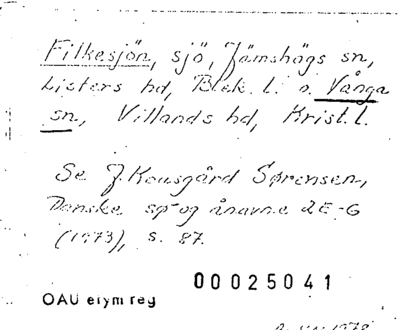 Filkesjön, sjö, Jämshögs sn,
Listers hd, Blek. l. o. Vånga
sn, Villands hd, Krist. l.
Se J. Kousgård Sørensen,
Danske sø- og ånavne 2 E-G
(1973), s. 87.
00025041
OAU etym reg
1978